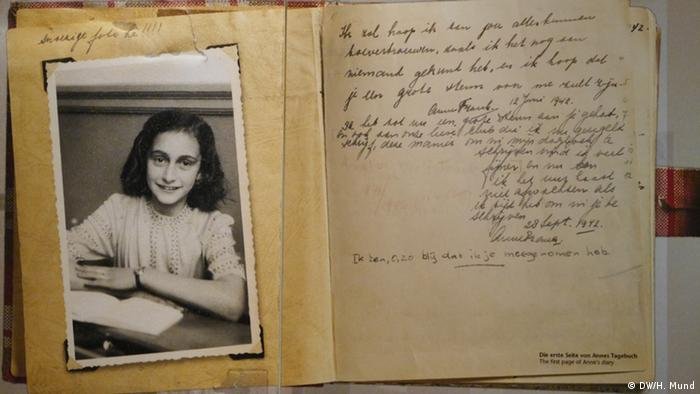 snoezige foto hé !!!!
Ik zal hoop ik aan jou alles kunnen
toevertrouwen, zoals ik het nog aan
niemand gekund heb, en ik hoop dat
je een grote steun voor me zult zijn.
Anne Frank. 12 Juni 1942.
Ik heb tot nu een grote steun aan je gehad,
en ook aan onze lieve club die ik nu geregeld
schrijf, deze manier om in mijn dagboek te
schrijven vind ik veel
fijner en nu kan
ik het uur haast
niet afwachten als
ik tijd heb om in je te
schrijven.
28 Sept. 1942.
Anne Frank.
Ik ben, o, zo blij dat ik je meegenomen heb.
42.
Die erste Seite von Annes Tagebuch
The first page of Anne's diary
© DW/H. Mund